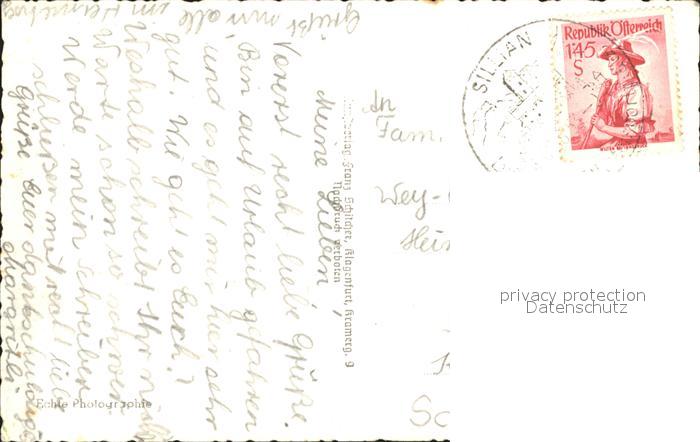 Meine Lieben!
Vorerst recht liebe Grüße.
Bin auf Urlaub gefahren
und es geht mir hier sehr
gut. Wie geht es Euch?
Weshalb schreibt Ihr
Warte schon so schwer
Werde mein Schreiben
schließen mit recht lieben
Grüße Euer
Grüßt mir alle
Franz Schilcher, Klagenfurt, Kramerg. 9
Nachdruck verboten
Echte Photographie
An
Fam.
Wey-
SILLIAN
Republik Österreich
1'45
S
privacy protection
Datenschutz